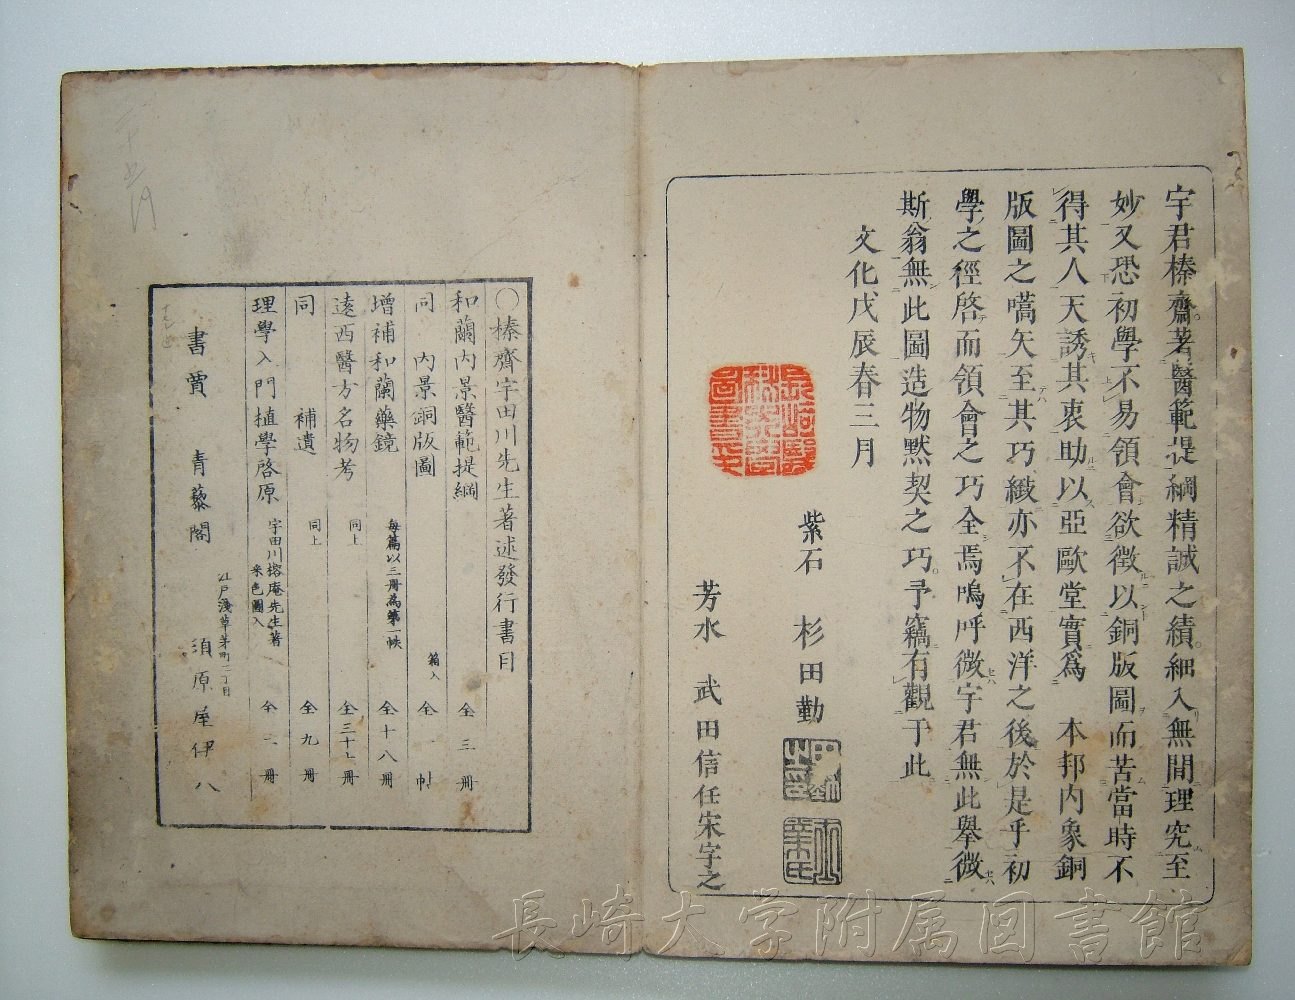 宇君榛齋著醫範提綱精誠之績細入無間理究至
妙又恐初學不易領會欲徵以銅版圖而苦當時不
得其人天誘其衷助以亞歐堂實爲　本邦内象銅
版圖之嚆矢至其巧緻亦不在西洋之後於是乎初
學之徑啓而領會之巧全焉嗚呼微宇君無此擧微
斯翁無此圖造物黙契之巧予竊有觀于此
文化戊辰春三月
紫石　杉田勤
芳水　武田信任宋字之
〇榛齋宇田川先生著述發行書目
和蘭内景醫範提綱　全三冊
同　内景銅版圖　箱入　全一帖
增補和蘭藥鏡　每篇以三冊為第一帙　全十八冊
遠西醫方名物考　同上　全三十六冊
同　補遺　同上　全九冊
理學入門植學啓原　宇田川榕庵先生著　釆色圖入　全三冊
書賈　青藜閣　江戸淺草茅町二丁目　須原屋伊八
長崎大学附属図書館